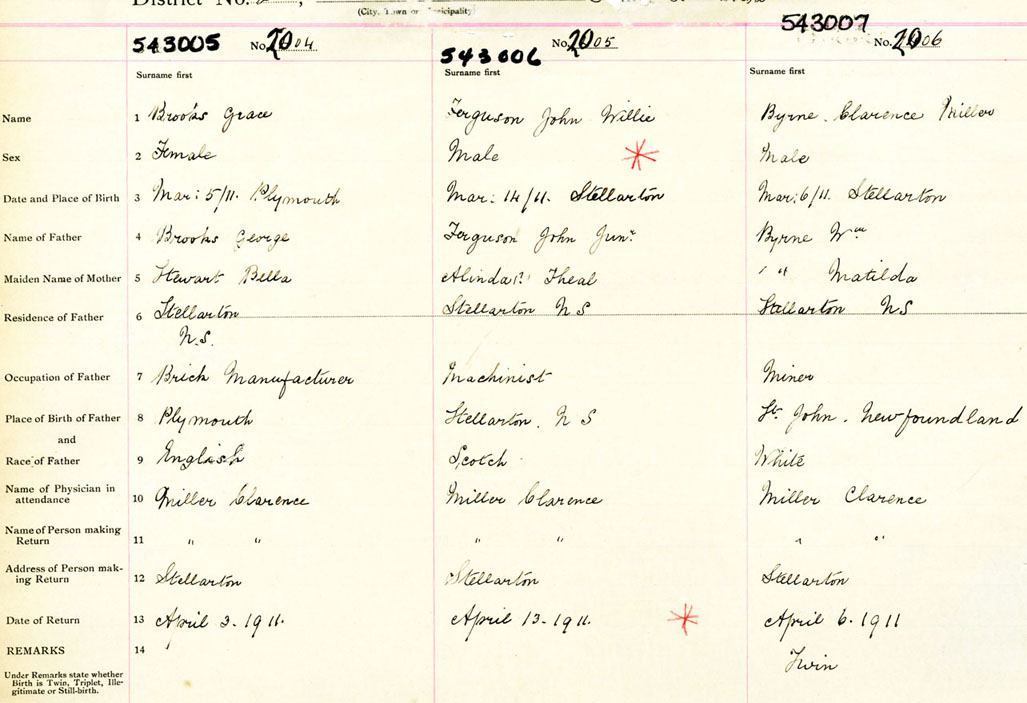 District No.
(City, Town or Municipality)
543005 No. 2004
543006 No. 2005
543007 No. 2006
Surname first Surname first Surname first
Name 1 Brooks Grace Ferguson John Willie Byrne. Clarence Miller
Sex 2 Female Male Male
Date and Place of Birth 3 Mar: 5/11. Plymouth Mar: 14/11. Stellarton Mar: 6/11. Stellarton
Name of Father 4 Brooks George Ferguson John Junr Byrne Wm
Maiden Name of Mother 5 Stewart Bella Alinda(?) Theal " " Matilda
Residence of Father 6 Stellarton Stellarton N S Stellarton N S
N.S.
Occupation of Father 7 Brick Manufacturer Machinist Miner
Place of Birth of Father 8 Plymouth Stellarton. N S St. John. Newfoundland
and
Race of Father 9 English Scotch White
Name of Physician in
attendance 10 Miller Clarence Miller Clarence Miller Clarence
Name of Person making
Return 11 " " " " " "
Address of Person mak-
ing Return 12 Stellarton Stellarton Stellarton
Date of Return 13 April 3. 1911. April 13. 1911. April 6. 1911
REMARKS 14 Twin
Under Remarks state whether
Birth is Twin, Triplet, Ille-
gitimate or Still-birth.